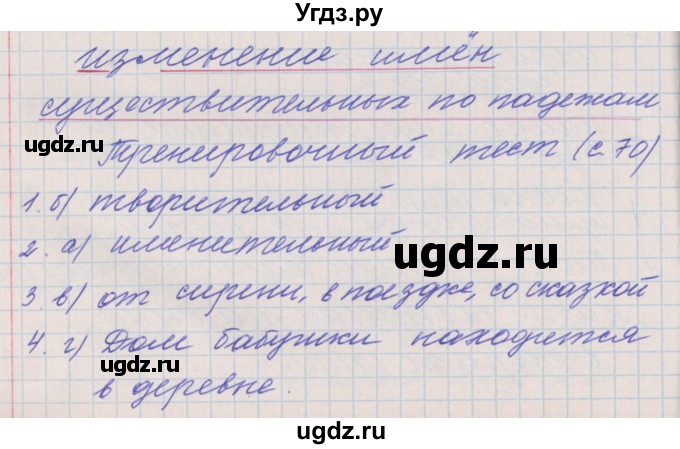 Угдз.ру
изменение имён
существительных по падежам
Тренировочный тест (с. 70)
ugdz.ru
1. б) творительный
2. а) именительный
ugdz.ru
3. в) от сирени, в поездке, со сказкой
4. г) Дом бабушки находится
ugdz.ru
в деревне.
ugdz.ru